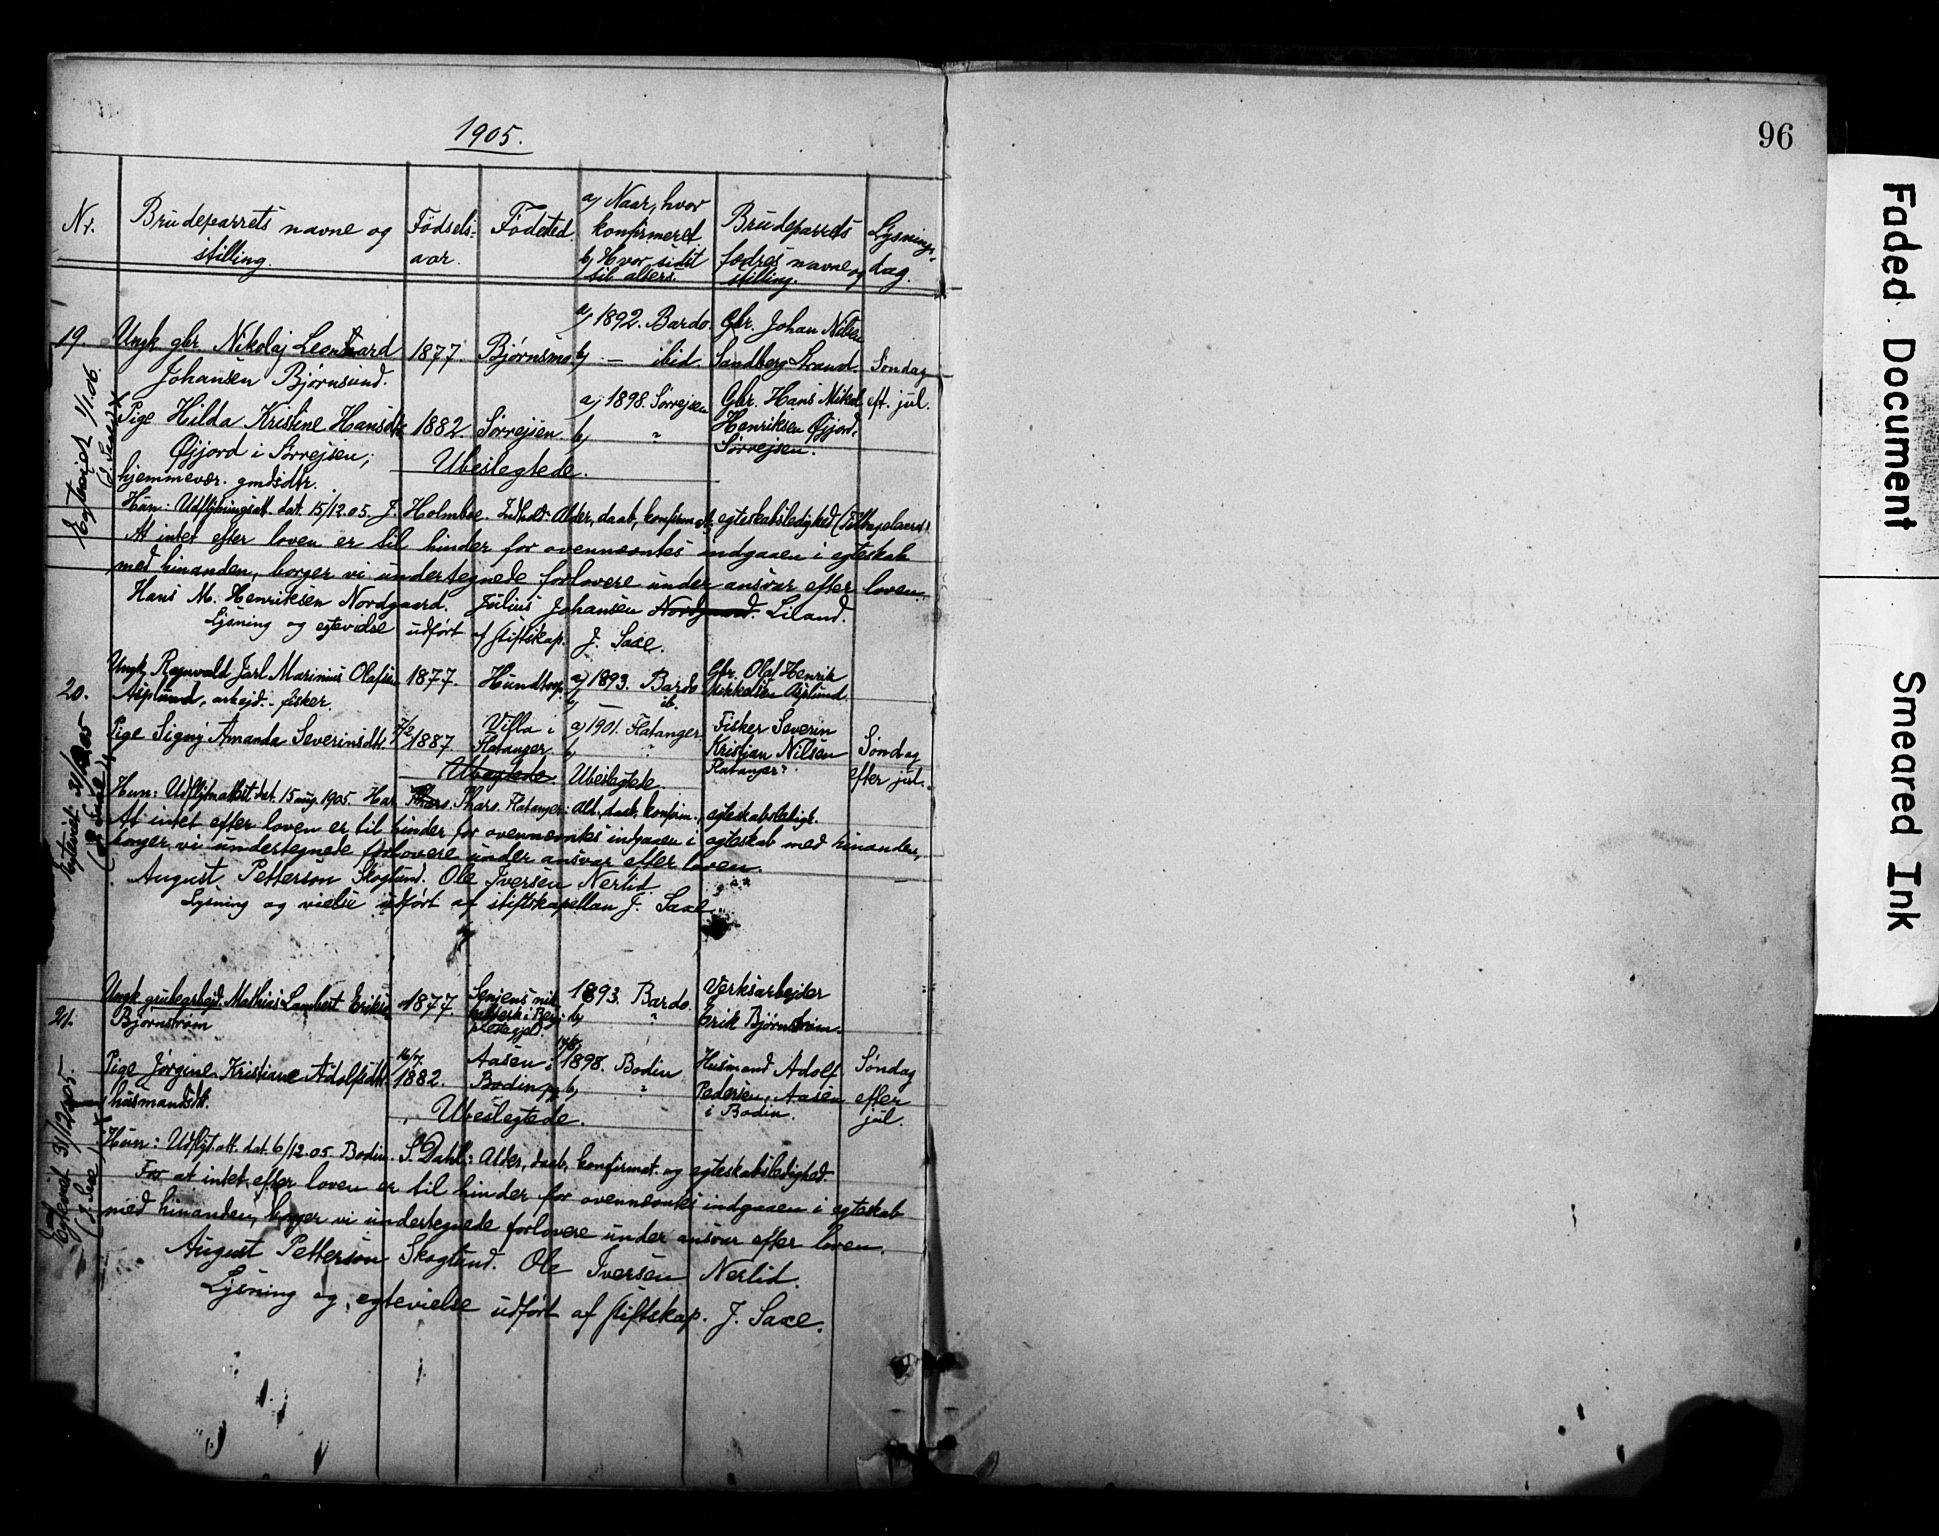 1905.
96
Nr.
Brudeparrets navne og stilling.
Fødsels- aar.
Fødested.
a) Naar, hvor konfirmeret
b) Hvor sidst til alters.
Brudeparrets fædres navne og stilling.
Lysnings- dag.
19.
Ungk. gbr. Nikolaj Leonhard
Johansen Bjørnsund.
1877.
Bjørnsmo
a) 1892. Bardo.
b) — ibid.
Gbr. Johan Nilsen
Sandberg Strand.
Søndag
eft. jul.
Pige Hilda Kristine Hansdtr
Øijord i Sørrejsen;
hjemmevær. gmdsdtr.
1882
Sørrejsen.
a) 1898. Sørrejsen
b) "
Gbr. Hans Mikal
Henriksen Øijord,
Sørrejsen.
Ubeslegtede.
Egteviet 1/1.06.
Hun: Udflytningsatt. dat. 15/12.05. J. Holmboe. Indhold: Alder, daab, konfirmat., egteskabsledighed
At intet efter loven er til hinder for ovennævntes indgaaen i egteskab
med hinanden, borger vi undertegnede forlovere under ansvar efter loven.
Hans M. Henriksen Nordgaard. Julius Johansen Liland.
Lysning og egtevielse udført af stiftskap. J. Saxe.
20.
Ungk. Ragnvald Jarl Marinius Olafsen
Asplund, arbejd. - fisker.
1877.
Hundtorp
a) 1893. Bardo
b) — ib.
Gbr. Olaf Henrik
Mikkelsen Asplund
Pige Signy Amanda Severinsdtt.
7/2 1887.
Villa i
Flatanger
a) 1901. Flatanger
b) "
Fisker Severin
Kristian Nilsen
Flatanger.
Søndag
efter jul.
Ubeslegtede.
Hun: Udflytn.attest dat. 15 aug. 1905. Thors. Flatanger: Ald., daab, konfirm., egteskabsledigh.
At intet efter loven er til hinder for ovennævntes indgaaen i egteskab med hinanden,
borger vi undertegnede forlovere under ansvar efter loven.
August Petterson Skoglund. Ole Iversen Nerlid.
Lysning og vielse udført af stiftskapellan J. Saxe.
21.
Ungk. grubearbejd. Mathias Lambert Eriksen
Bjørnstrøm
1877.
Senjens nik-
kelverk i Berg
prestegjel
1893. Bardo.
b) "
Verksarbejder
Erik Bjørnstrøm.
Pige Jørgine Kristiane Adolfsdtt.
husmandsdt.
16/7 1882.
Aasen i
Bodin pg.
1898. Bodin
b) "
Husmand Adolf
Pedersen, Aasen
i Bodin.
Søndag
efter
jul.
Ubeslegtede.
Egteviet 31/12 05.
(J. Saxe)
Hun: Udflyt. att. dat. 6/12.05 Bodin. S. Dahl: Alder, daab, konfirmat. og egteskabsledighed.
For at intet efter loven er til hinder for ovennævntes indgaaen i egteskab
med hinanden, borger vi undertegnede forlovere under ansvar efter loven.
August Petterson Skoglund. Ole Iversen Nerlid.
Lysning og egtevielse udført af stiftskap. J. Saxe.
Faded Document
Smeared Ink